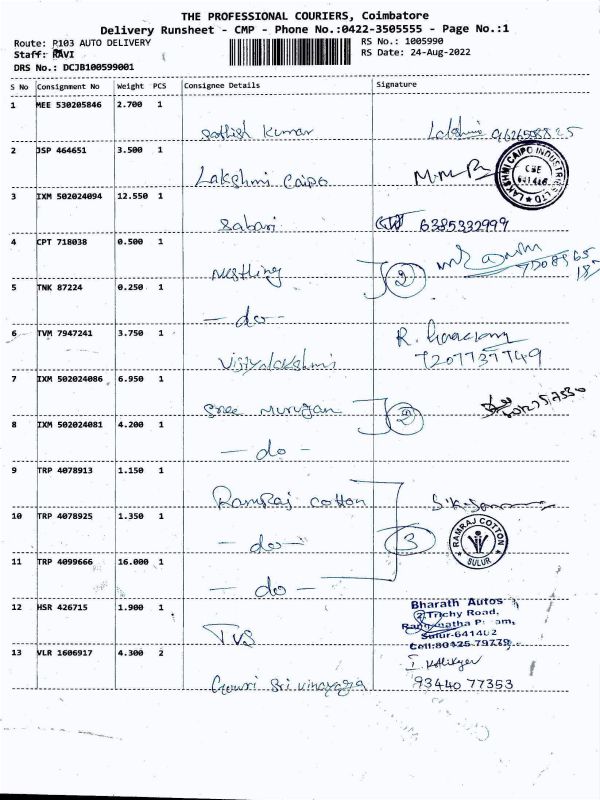 THE PROFESSIONAL COURIERS, Coimbatore
Delivery Runsheet - CMP - Phone No.:0422-3505555 - Page No.:1
Route: R103 AUTO DELIVERY
RS No.: 1005990
Staff: RAVI
RS Date: 24-Aug-2022
DRS No.: DCJB100599001
S No Consignment No Weight PCS Consignee Details Signature
1 MEE 530205846 2.700 1
Sathish Kumar Lakshmi
2 JSP 464651 3.500 1
Lakshmi Caipo
LAKSHMI CAIPO INDUSTRIES LTD
CBE
641 446
3 IXM 502024094 12.550 1
Sabari 6385332999
4 CPT 718038 0.500 1
Nestling 2
5 TNK 87224 0.250 1
- do -
6 TVM 7947241 3.750 1
Vijiyalakshmi R.
7207737749
7 IXM 502024086 6.950 1
Sree Murugan 2
8 IXM 502024081 4.200 1
- do -
9 TRP 4078913 1.150 1
Ramraj cotton
10 TRP 4078925 1.350 1
- do - 3
RAMRAJ COTTON
SULUR
11 TRP 4099666 16.000 1
- do -
12 HSR 426715 1.900 1
TVS
Bharath Autos
Trichy Road,
Sulur-641402
Cell:80125 79779
13 VLR 1606917 4.300 2
Gowri Sri vinayaga
93440 77353